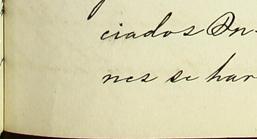 ciados In-
nes se har